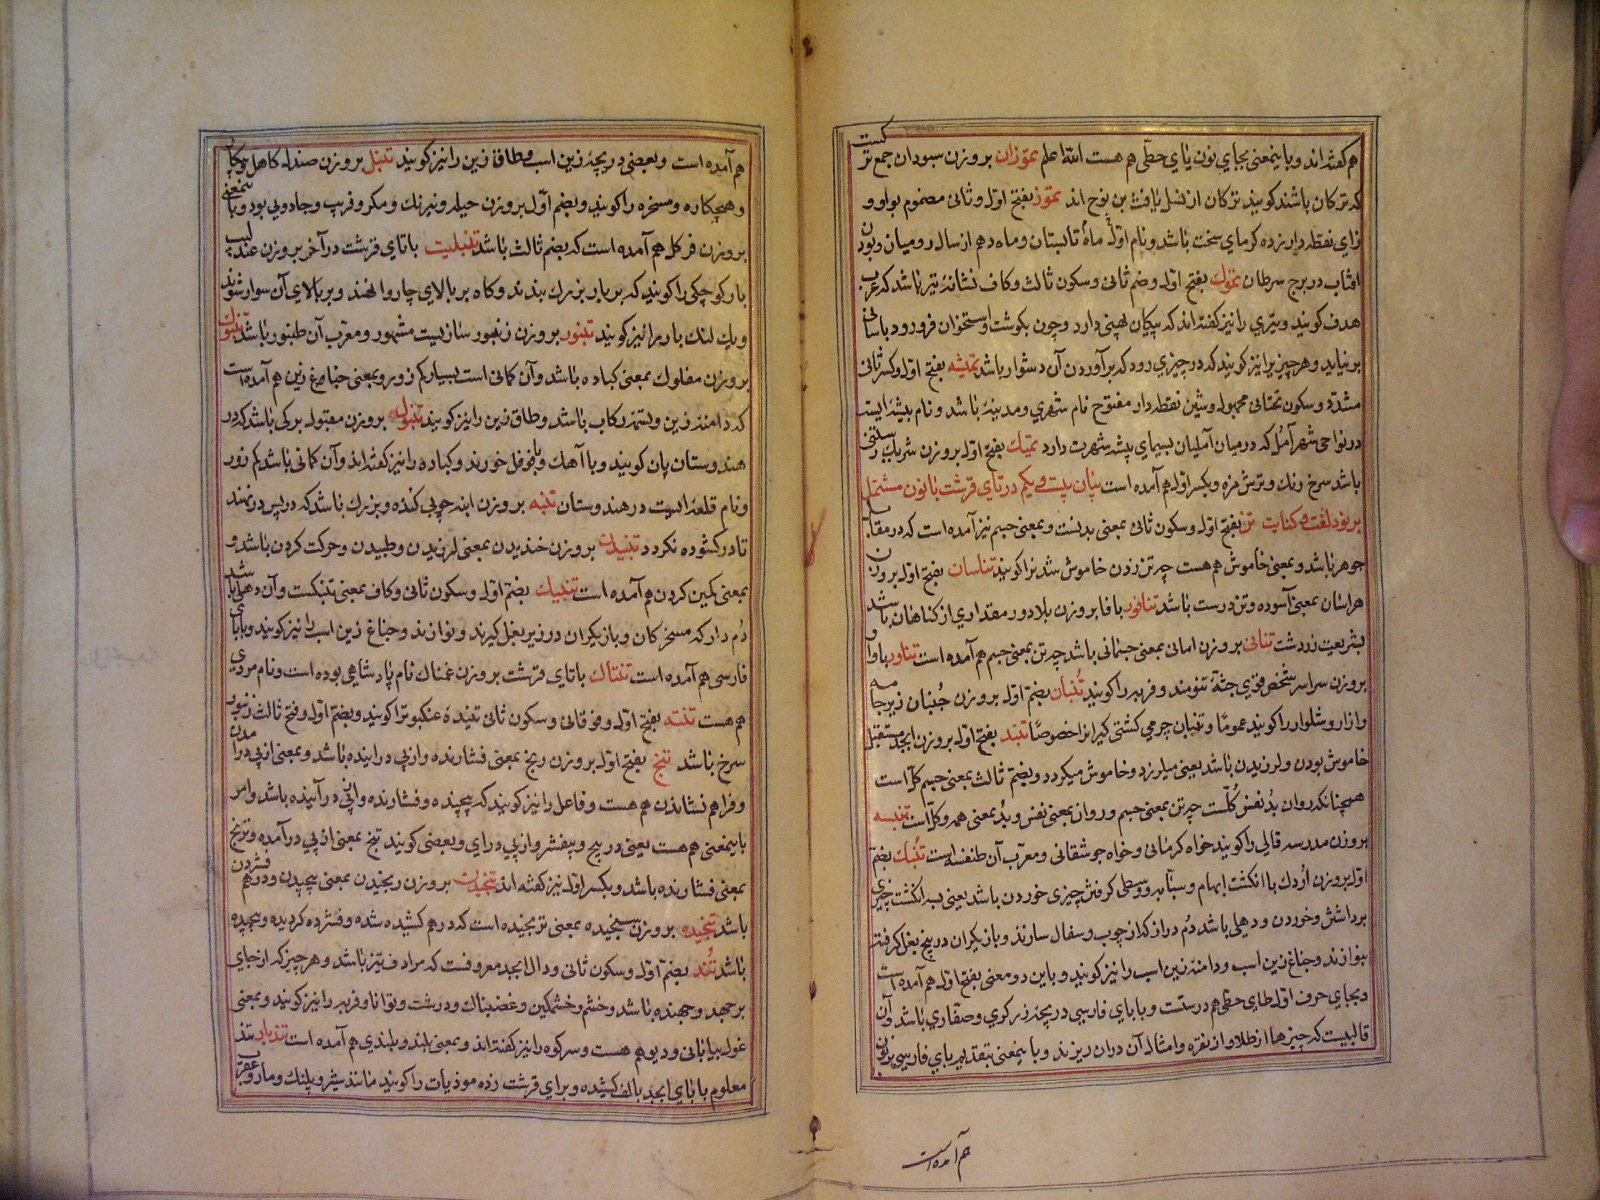 هم گفته‌اند و باینمعنی بجای نون یای حطی هم هست الله اعلم تموزان بر وزن سبودان جمع ترکست
که ترکان باشند گویند ترکان از نسل یافث بن نوح اند تموز بفتح اول و ثانی مضموم بواو و
زای نقطه دار زده گرمای سخت باشد و نام اول ماه تابستان و ماه دهم از سال رومیان و بودن
افتاب در برج سرطان تموک بفتح اول و ضم ثانی و سکون ثالث و کاف نشانه تیر باشد که عرب
هدف گویند و تیری را نیز گفته‌اند که پیکان پهنی دارد و چون بگوشت و استخوان فرو رود باسانی
بر نیاید و هر چیز را نیز گویند که در چیزی رود که برآوردن آن دشوار باشد تمیشه بفتح اول و کسر ثانی
مشدد و سکون تحتانی مجهول و شین نقطه دار مفتوح نام شهری و مدینه باشد و نام بیشه ایست
در نواحی شهر آمل که در میان آملیان بسیمای پیشه شهرت دارد تمیک بفتح اول بر وزن شریک رستنی
باشد سرخ رنک و ترش مزه و بکسر اول هم آمده است بیان بیست و یکم در تای قرشت با نون مشتمل
بر نود لغت و کنایت تن بفتح اول و سکون ثانی بمعنی بدنست و بمعنی جسم نیز آمده است که در مقابل
جوهر باشد و بمعنی خاموش هم هست چه تن زدن خاموش شدن را گویند تناسان بفتح اول بر وزن
هراسان بمعنی آسوده و تن درست باشد تنافور با فا بر وزن بلادور مقداری از گناهان باشد
بشریعت زردشت تنانی بر وزن امانی بمعنی جسمانی باشد چه تن بمعنی جسم هم آمده است تناور با واو
بر وزن سراسر شخص قوی جثه تنومند و فربه را گویند تنبان بضم اول بر وزن جنبان زیر جامه
و ازار و شلوار را گویند عموما و تنبان چرمی کشتی گیرانرا خصوصا تنبد بفتح اول بر وزن ابجد مستقبل
خاموش بودن و لرزیدن باشد یعنی میلرزد و خاموش میگردد و بضم ثالث بمعنی جسم کل است
همچنانکه روان بد نفس کلست چه تن بمعنی جسم و روان بمعنی نفس و بد بمعنی همه و کل است تنبسه
بر وزن مدرسه قالی را گویند خواه کرمانی و خواه جوشقانی و معرب آن طنفسه است تنبک بضم
اول بر وزن اردک با انکشت ابهام و سبابه و وسطی گرفتن چیزی خوردن باشد یعنی بسه انکشت چیزی
برداشتن و خوردن و دهلی باشد دم دراز که از چوب و سفال سازند و بازیگران در پیچ بغل گرفته
بنوازند و جناغ زین اسب و دامنه زین اسب را نیز گویند و باین دو معنی بفتح اول هم آمده است
و بجای حرف اول طای حطی هم درستست و با بای فارسی دریچه زرگری و صفاری باشد و آن
قالبیست که چیزها از طلا و از نقره و امثال آن دران ریزند و باینمعنی بتقدیم بای فارسی بر نون
هم آمده است
هم آمده است و بعضی دریچه زین اسب و طاق زین را نیز گویند تنبل بر وزن صندل کاهل و بیکار
و هیچکاره و مسخره را گویند و بضم اول بر وزن حیله و نیرنک و مکر و فریب و جادویی بود و باینمعنی
بر وزن فرکل هم آمده است که بضم ثالث باشد تنبلیت با تای قرشت در آخر بر وزن عندلیب
بار کوچکی را گویند که بر بار بزرک بندند و گاه بر بالای چاروا نهند و بر بالای آن سوار شوند
و یک لنک بار را نیز گویند تنبور بر وزن زنبور سازیست مشهور و معرب آن طنبور باشد تنبوک
بر وزن مفلوک بمعنی کباده باشد و آن کمانی است بسیار کم زور و بمعنی جناغ زین هم آمده است
که دامنه زین و پستمه رکاب باشد و طاق زین را نیز گویند تنبول بر وزن مقبول برگی باشد که در
هندوستان پان گویند و با آهک و با فوفل خورند و کباده را نیز گفته‌اند و آن کمانی باشد کم زور
و نام قلعه ایست در هندوستان تنبه بر وزن انبه چوبی کنده و بزرک باشد که در پس در نهند
تا در گشوده نگردد تنبیدن بر وزن خندیدن بمعنی لرزیدن و طپیدن و حرکت کردن باشد و
بمعنی کمین کردن هم آمده است تنبیک بضم اول و سکون ثانی و کاف بمعنی تنبکست و آن دهلی باشد
دم دار که مسخرکان و بازیگران در زیر بغل گیرند و نوازند و جناغ زین اسب را نیز گویند و با بای
فارسی هم آمده است تنتاک با تای قرشت بر وزن غمناک نام پادشاهی بوده است و نام مردی
هم هست تنته بفتح اول و فوقانی و سکون ثانی تنیده عنکبوت را گویند و بضم اول و فتح ثالث زنبور
سرخ باشد تنج بفتح اول بر وزن رنج بمعنی فشارنده و از پی در اینده باشد و بمعنی از پی درآمدن
و فراهم نشاندن هم هست و فاعل را نیز گویند که پیچنده و فشارنده و از پی در آینده باشد و امر
باینمعنی هم هست یعنی در پیچ و بیفشر و از پی درای و بعضی گویند تنج بمعنی از پی درآمده و ترنج
بمعنی فشارنده باشد و بکسر اول نیز گفته اند تنجیدن بر وزن رنجیدن بمعنی پیچیدن و درهم فشردن
باشد تنجیده بر وزن سنجیده بمعنی ترنجیده است که درهم کشیده شده و فشرده گردیده و پیچیده
باشد تند بضم اول و سکون ثانی و دال ابجد معروفست که مرادف تیز باشد و هر چیز که از جای
برجهد و جهنده باشد و خشم و خشمگین و غضبناک و درشت و توانا و فربه را نیز گویند و بمعنی
غول بیابانی و دیو هم هست و سر کوه را نیز گفته‌اند و بمعنی بلند و بلندی هم آمده است تندبار تند
معلوم با بای ابجد بالف کشیده و برای قرشت زده موذیات را گویند مانند شیر و پلنک و مار و عقرب